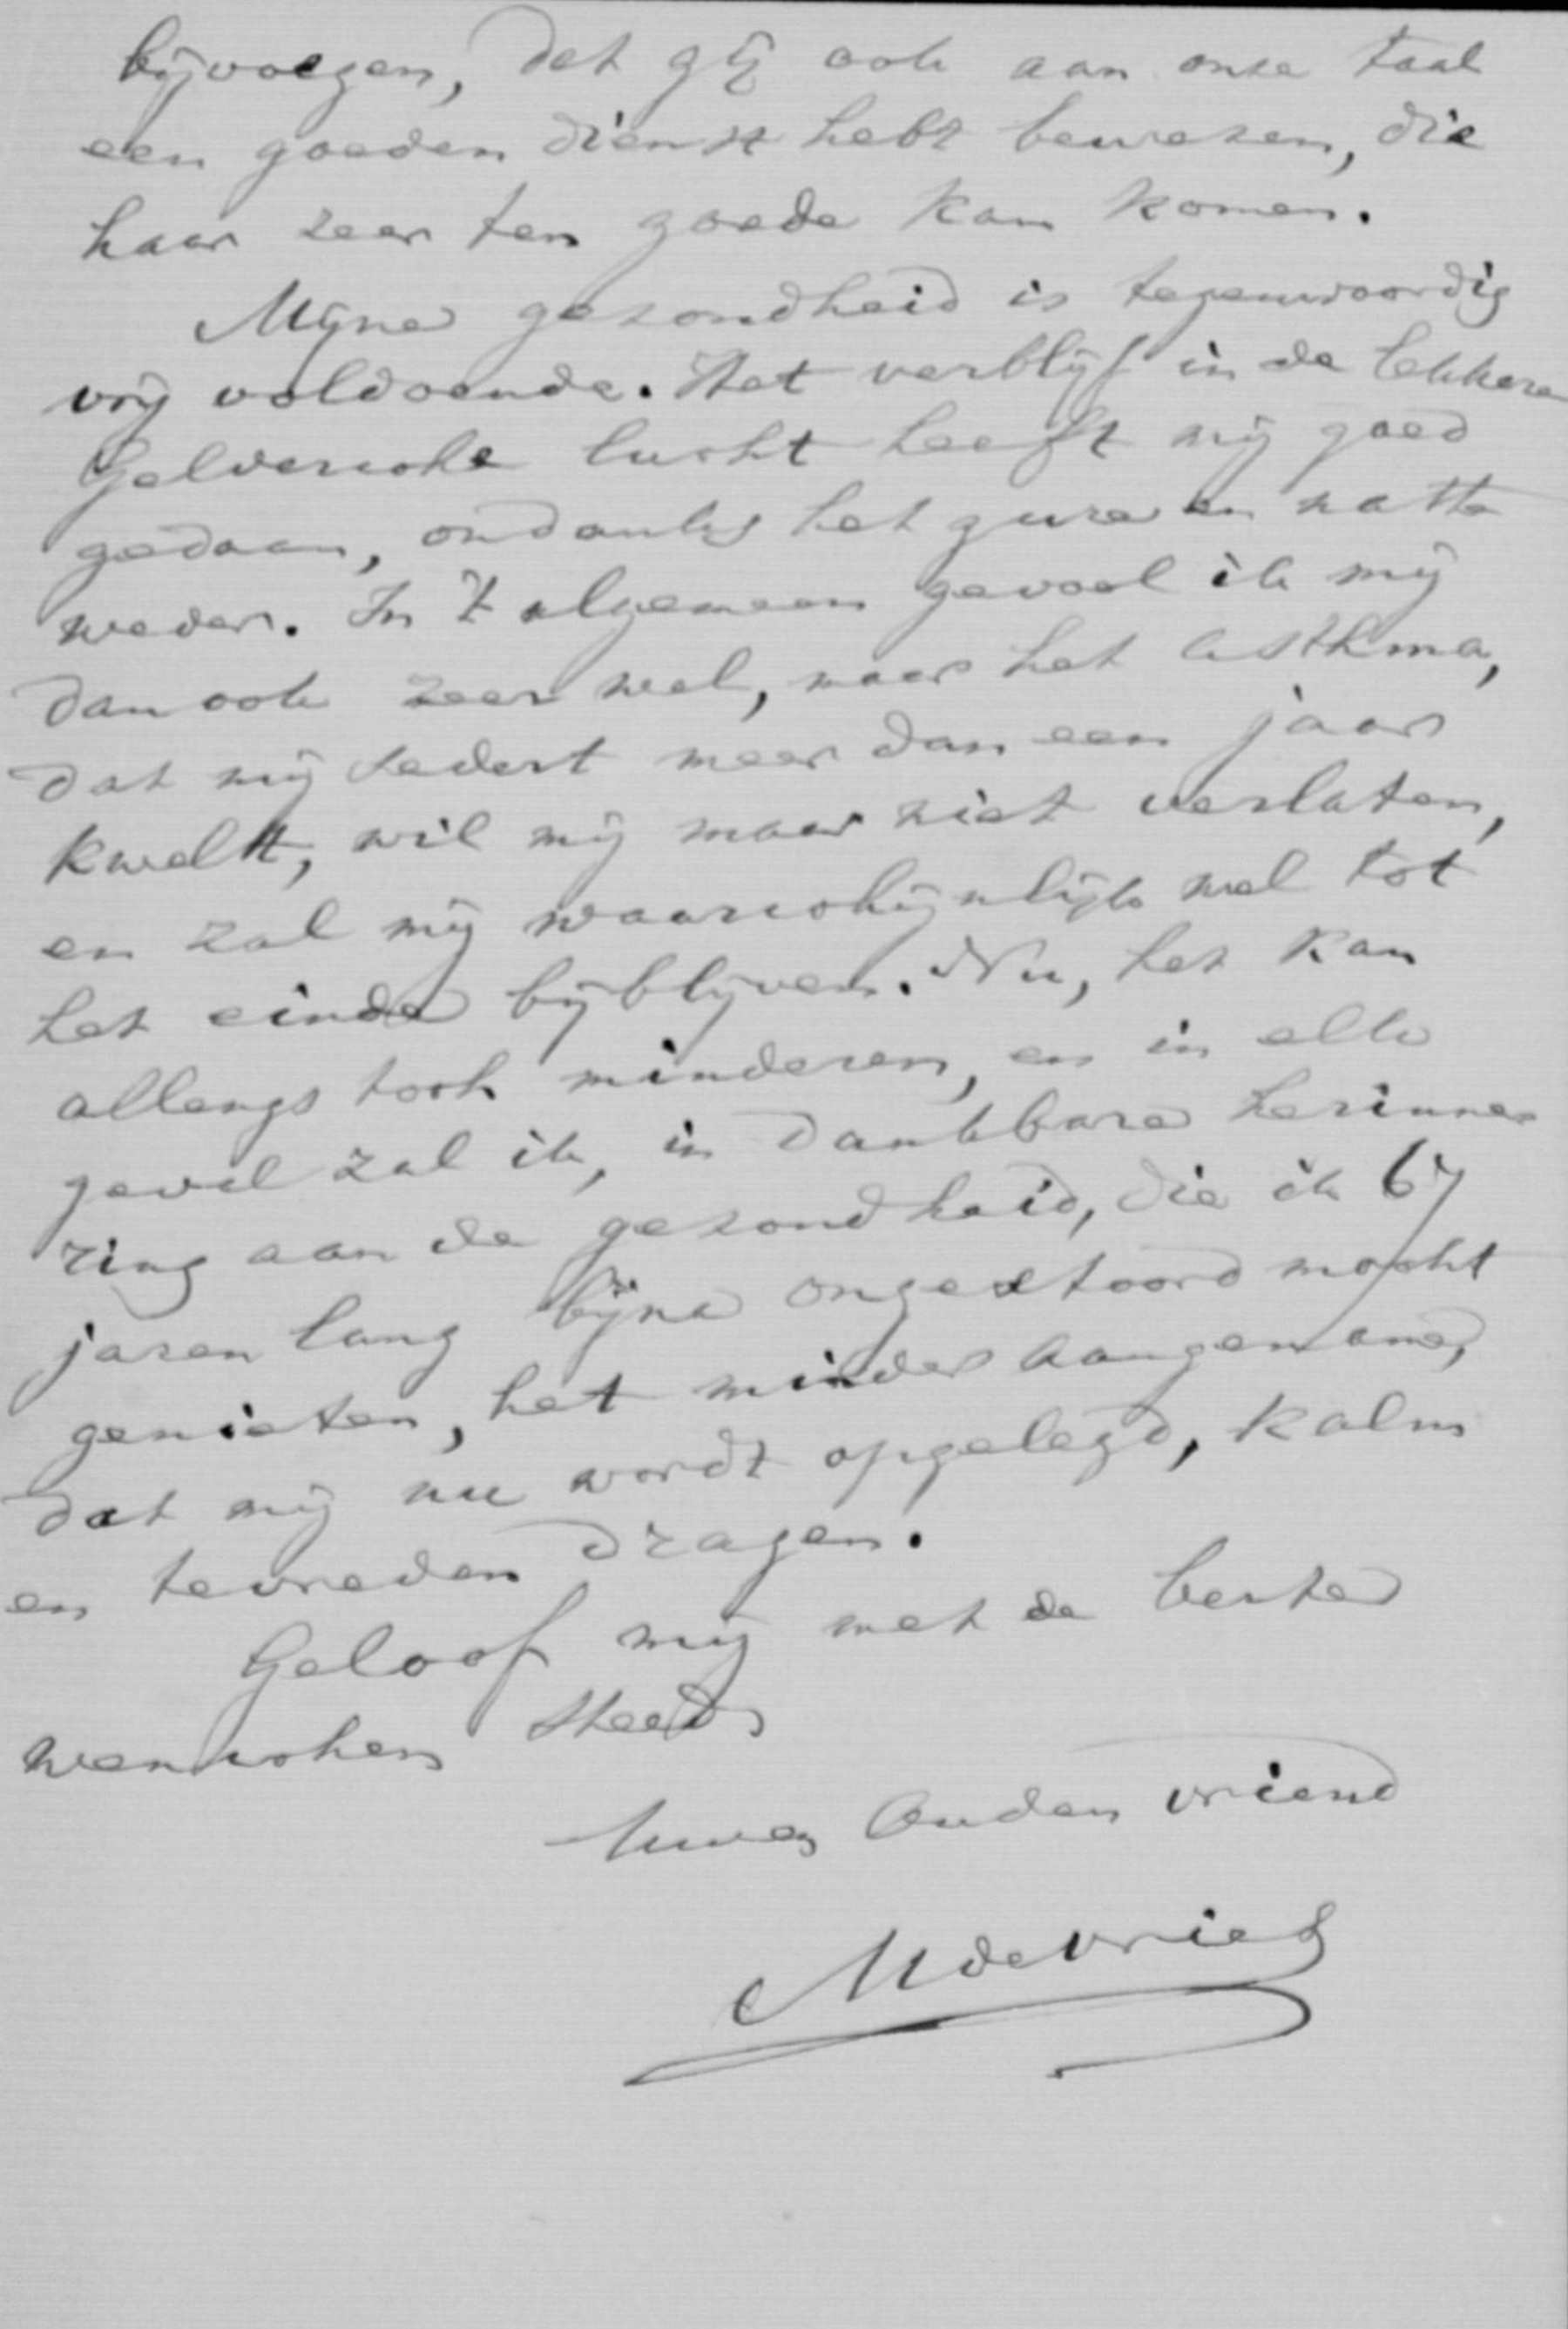 bijvoegen, dat gij ook aan onze taal
een goeden dienst hebt bewezen, die
haar zeer ten goede kan komen.
Mijne gezondheid is tegenwoordig
vrij voldoende. Het verblijf in de lekkere
Geldersche lucht heeft mij goed
gedaan, ondanks het gure en natte
weder. In 't algemeen gevoel ik mij
dan ook zeer wel, maar het asthma,
dat mij sedert meer dan een jaar
kwelt, wil mij maar niet verlaten,
en zal mij waarschijnlijk wel tot
het einde bijblijven. Nu, het kan
allengs toch minderen, en in elk
geval zal ik, in dankbare herinne
ring aan de gezondheid, die ik 67
jaren lang bijna ongestoord mocht
genieten, het minder aangename,
dat mij nu wordt opgelegd, kalm
en tevreden dragen.
Geloof mij met de beste
wenschen steeds
Uwen Ouden vriend
M de Vries